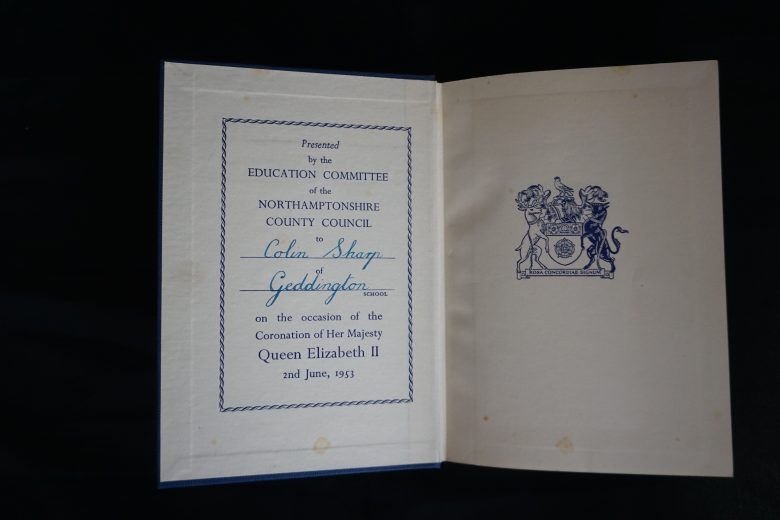 Presented
by the
EDUCATION COMMITTEE
of the
NORTHAMPTONSHIRE
COUNTY COUNCIL
to
Colin Sharp
of
Geddington SCHOOL
on the occasion of the
Coronation of Her Majesty
Queen Elizabeth II
2nd June, 1953
ROSA CONCORDIAE SIGNUM